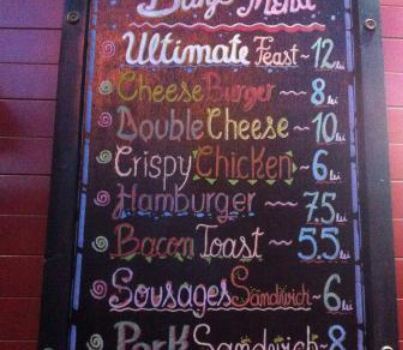 Menu
Ultimate Feast ~ 12 lei
Cheese Burger ~~ 8 lei
Double Cheese ~ 10 lei
Crispy Chicken ~ 6 lei
Hamburger ~~ 7.5 lei
Bacon Toast ~ 5.5 lei
Sousages Sandwich ~ 6 lei
Pork Sandwich ~ 8